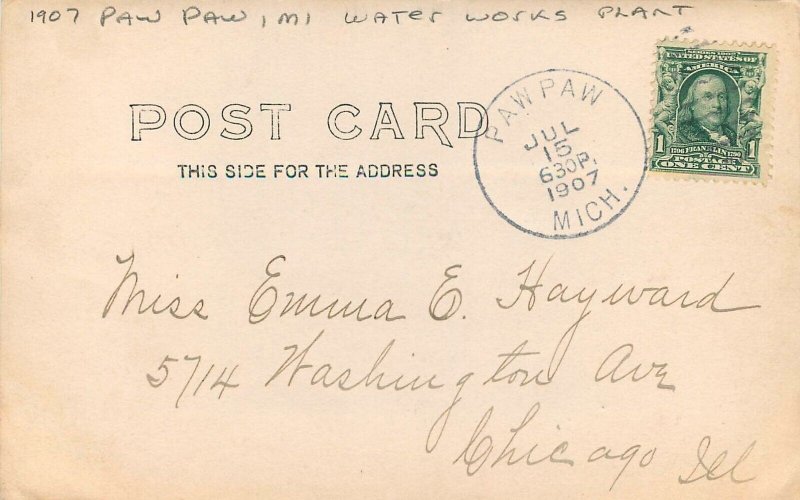 1907 PAW PAW, MI WATER WORKS PLANT
POST CARD
THIS SIDE FOR THE ADDRESS
PAW PAW
JUL
15
630P.
1907
MICH.
SERIES 1902
UNITED STATES OF
AMERICA
1 1
1706 FRANKLIN 1790
POSTAGE
ONE CENT
Miss Emma E. Hayward
5714 Washington Ave
Chicago Ill